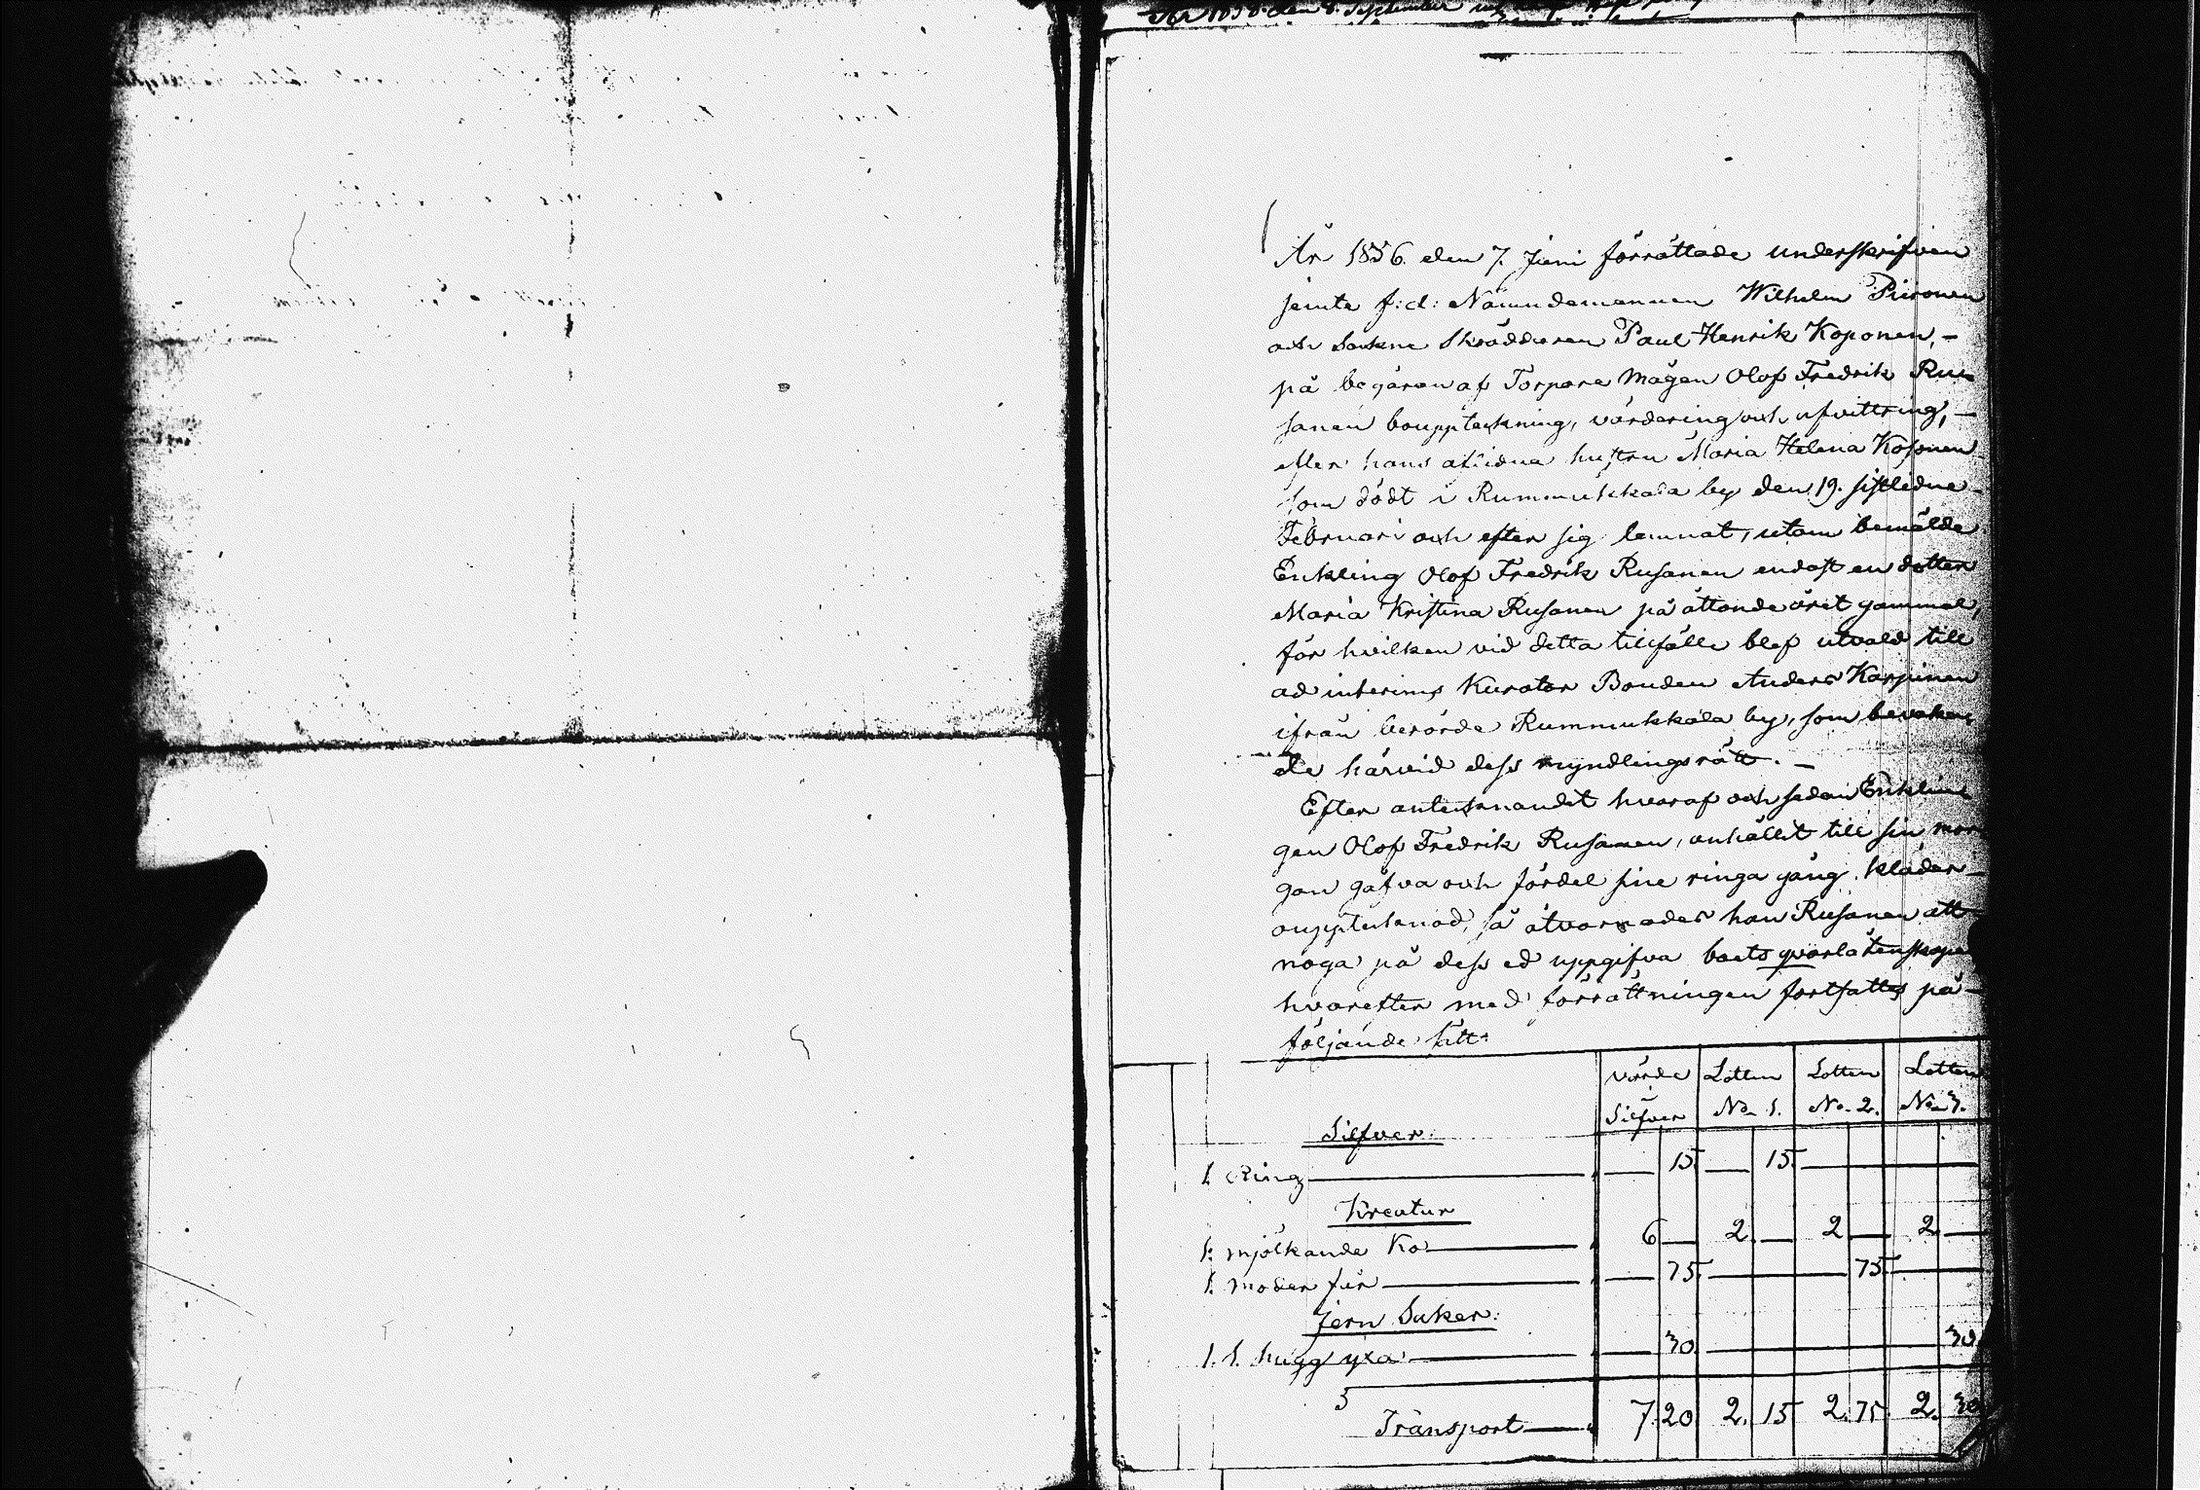 År 1856. den 7. Juni förrättade underskrifven
jemte f:d: Nämndemannen Wilhelm Piironen
och Sockne Skräddaren Paul Henrik Koponen, -
på begäran af Torpare Mågen Olof Fredrik Ru-
sanen bouppteckning, värdering och afvittring, -
efter hans aflidna hustru Maria Helena Koponen
som dödt i Rummukkala by den 19. sistlidne
Februari och efter sig lemnat, utom bemälde
Enkling Olof Fredrik Rusanen endast en dotter
Maria Kristina Rusanen på åttonde året gammal,
för hvilken vid detta tillfälle blef utvald till
ad interims Kurator Bonden Anders Karpinen
ifrån berörde Rummukkala by, som bevaka-
de härvid dess myndlingsrätt. -
Efter antecknandet hvaraf och sedan Enklin-
gen Olof Fredrik Rusanen, anhållit till sin mor-
gon gåfva och fördel sine ringa gång kläder
oupptecknad, så åtvarnades han Rusanen att
noga på dess ed uppgifva boets qvarlåtenskap
hvarefter med förrättningen fortsattes på -
följande sätt
värde Lotten Lotten Lotten
Silfver No 1. No. 2. No 3.
Silfver.
1. Ring 15. 15.
Kreatur
1: mjölkande Ko 6 2 2 2
1. moder får 75. 75.
Jern Saker.
1. 1. hugg yxa 30 30
Transport 7. 20 2. 15 2. 75. 2. 30